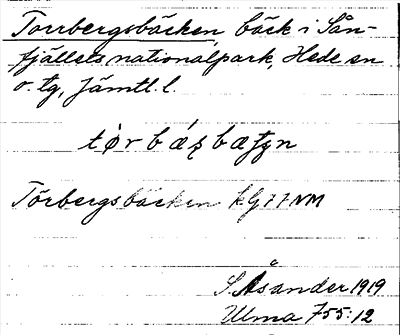 Torrbergsbäcken bäck i Sån-
fjällets nationalpark, Hede sn
o. tg, Jämtl. l.
Törbergsbäcken
S. Åsander 1919
Ulma 755:12